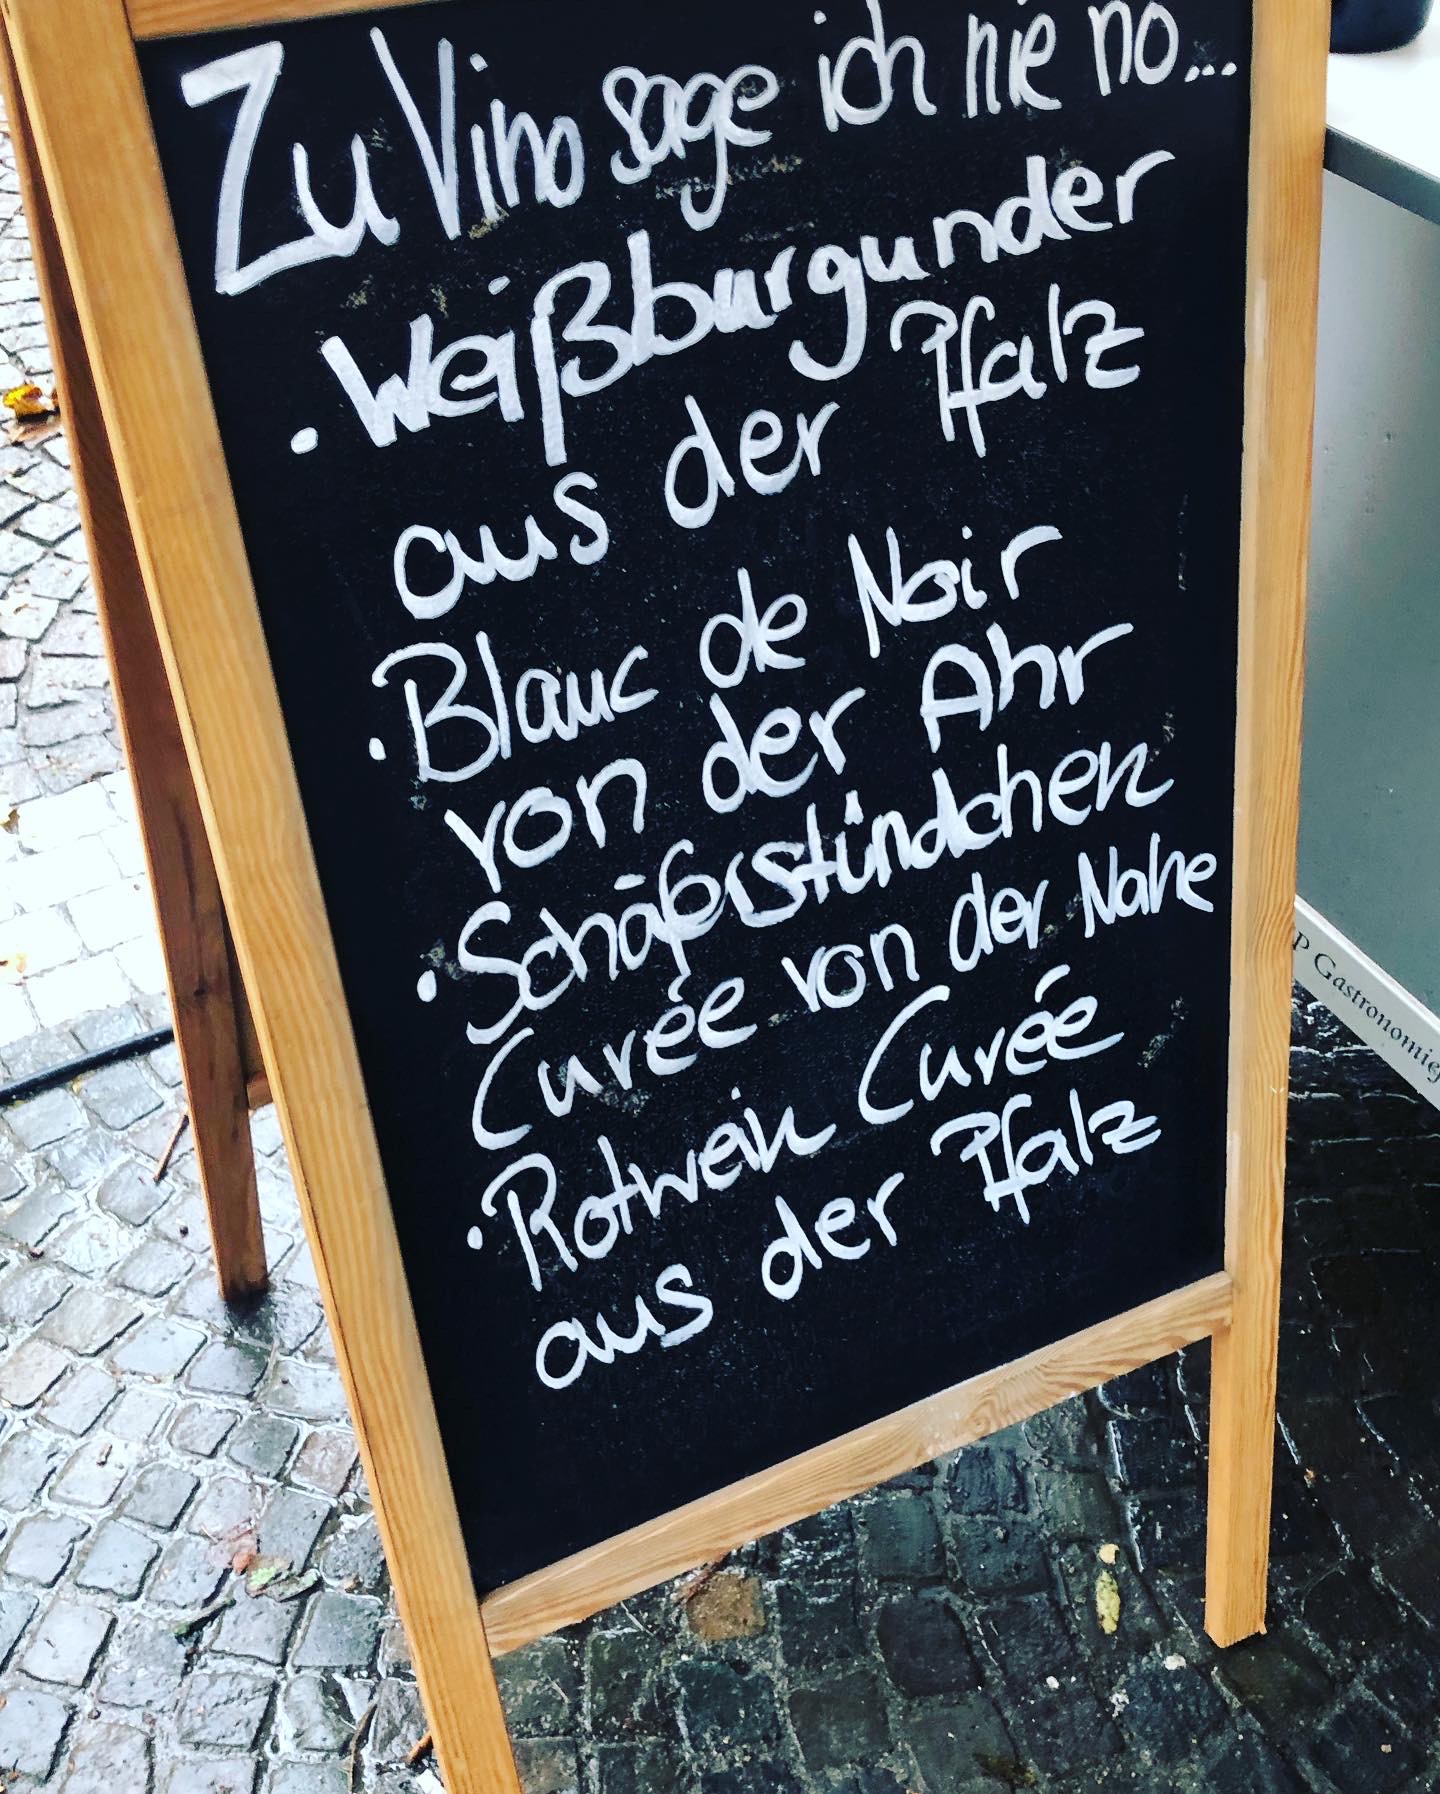 Zu Vino sage ich nie no...
· Weißburgunder
aus der Pfalz
· Blanc de Noir
von der Ahr
· Schäferstündchen
Curée von der Nahe
· Rotwein Curée
aus der Pfalz
P Gastronomie